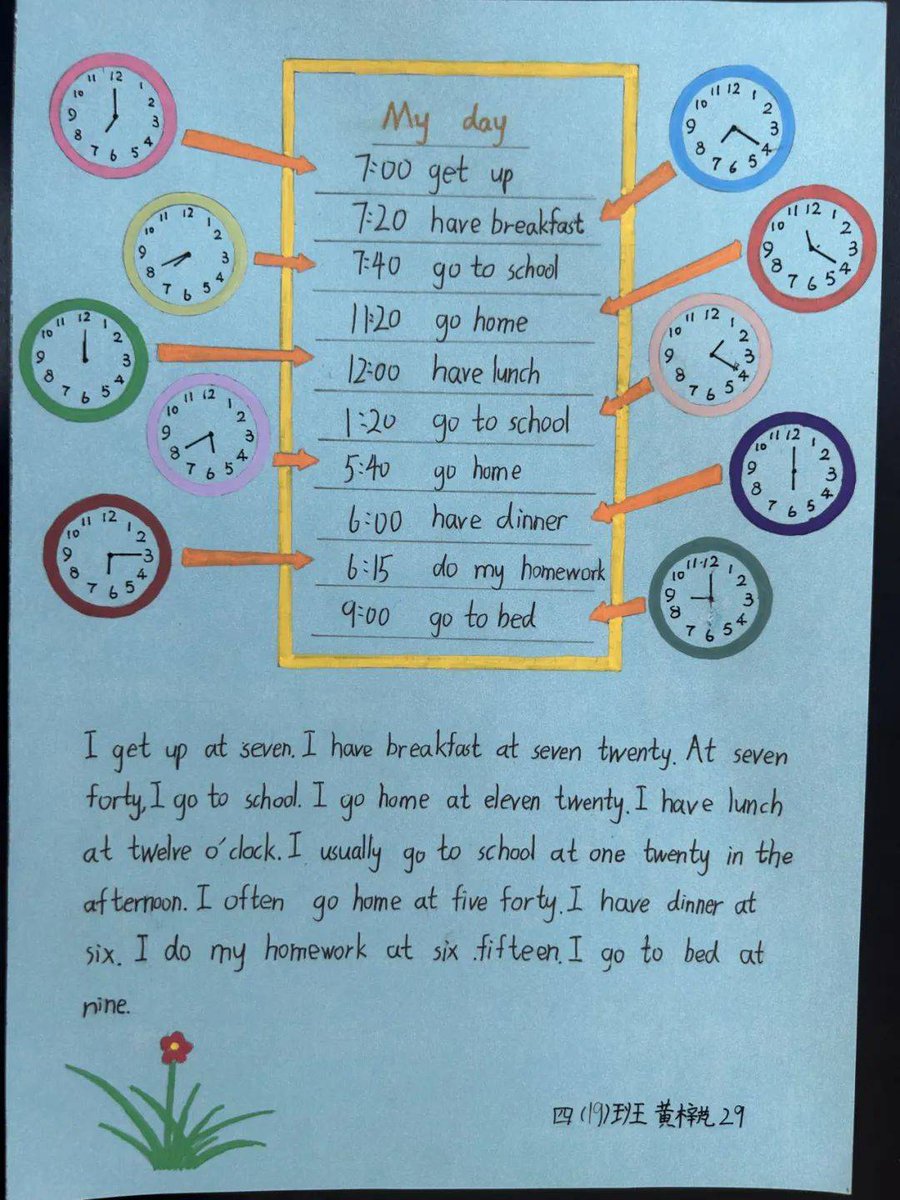 My day
7:00 get up
7:20 have breakfast
7:40 go to school
11:20 go home
12:00 have lunch
1:20 go to school
5:40 go home
6:00 have dinner
6:15 do my homework
9:00 go to bed
I get up at seven. I have breakfast at seven twenty. At seven
forty, I go to school. I go home at eleven twenty. I have lunch
at twelve o'clock. I usually go to school at one twenty in the
afternoon. I often go home at five forty. I have dinner at
six. I do my homework at six .fifteen. I go to bed at
nine.
四(19)班 黄梓 29